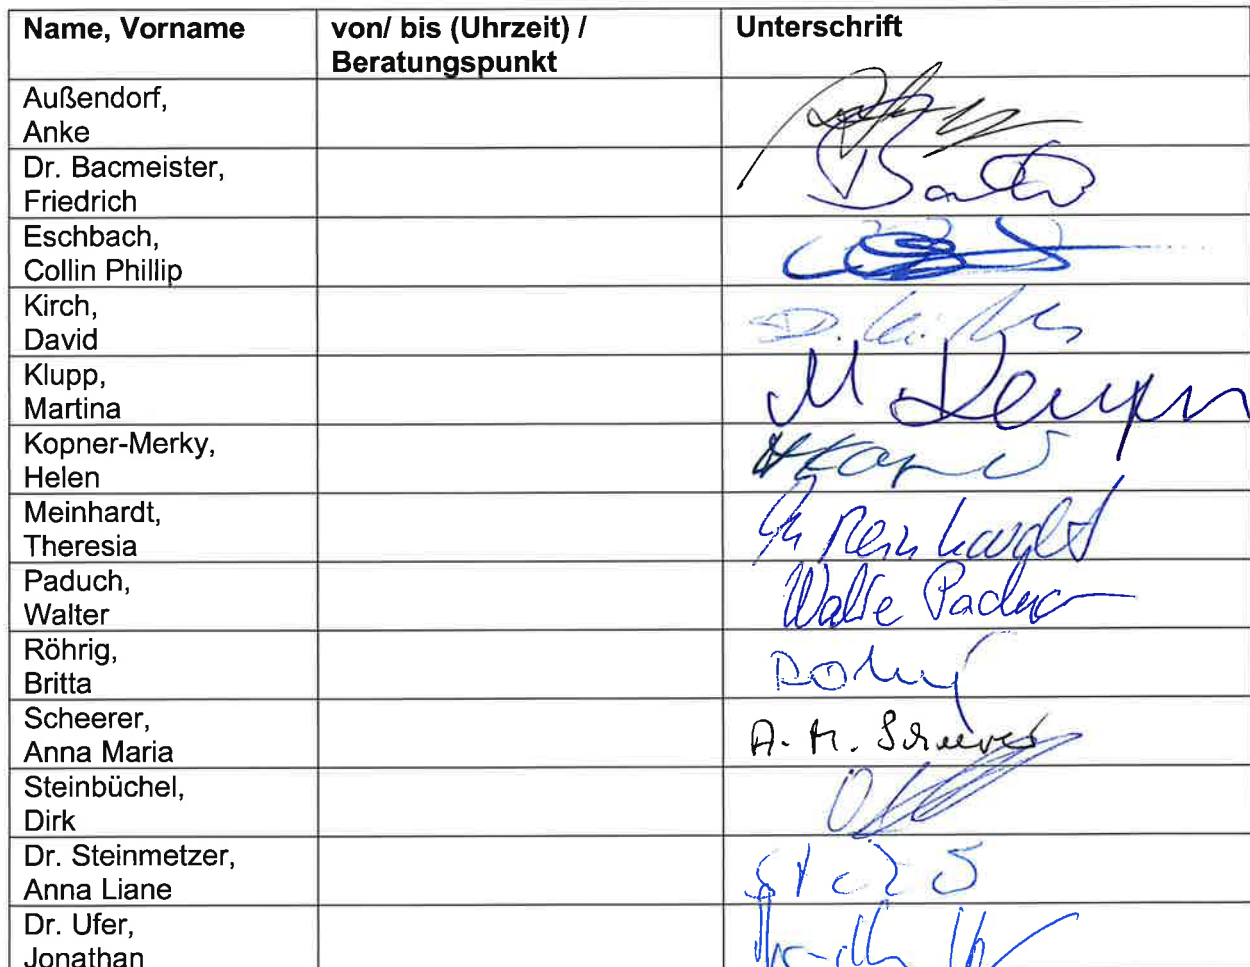 Name, Vorname
von/ bis (Uhrzeit) /
Beratungspunkt
Unterschrift
Außendorf,
Anke
Dr. Bacmeister,
Friedrich
Eschbach,
Collin Phillip
Kirch,
David
D.
Klupp,
Martina
M
Kopner-Merky,
Helen
Meinhardt,
Theresia
Meinhardt
Paduch,
Walter
Walter Paduch
Röhrig,
Britta
Scheerer,
Anna Maria
A. M. Scheerer
Steinbüchel,
Dirk
Dr. Steinmetzer,
Anna Liane
Dr. Ufer,
Jonathan